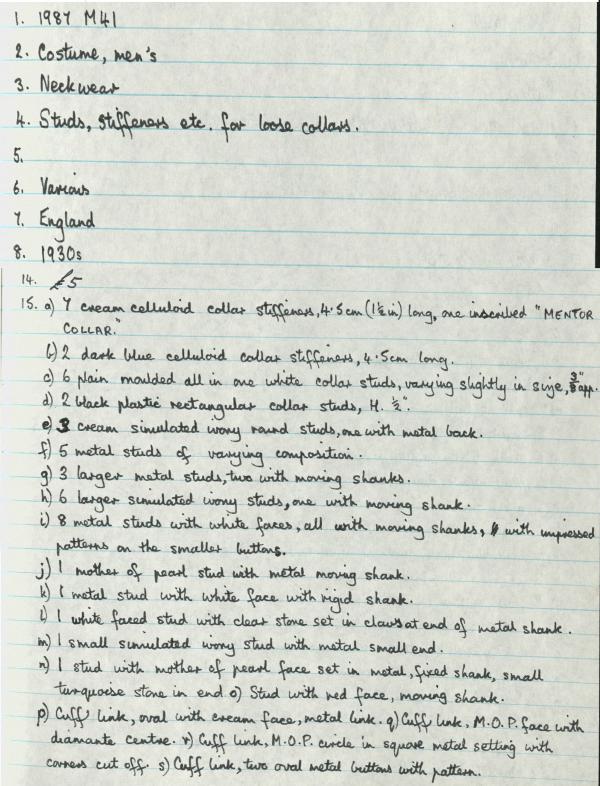 1. 1987 M41
2. Costume, men's
3. Neckwear
4. Studs, stiffeners etc. for loose collars.
5.
6. Various
7. England
8. 1930s
14. £5
15. a) 7 cream celluloid collar stiffeners, 4.5cm (1½in) long, one inscribed "MENTOR
COLLAR."
b) 2 dark blue celluloid collar stiffeners, 4.5cm long.
c) 6 plain moulded all in one white collar studs, varying slightly in size, ⅜" app.
d) 2 black plastic rectangular collar studs, H. ½".
e) 3 cream simulated ivory round studs, one with metal back.
f) 5 metal studs of varying composition.
g) 3 larger metal studs, two with moving shanks.
h) 6 larger simulated ivory studs, one with moving shank.
i) 8 metal studs with white faces, all with moving shanks, with impressed
patterns on the smaller buttons.
j) 1 mother of pearl stud with metal moving shank.
k) 1 metal stud with white face with rigid shank.
l) 1 white faced stud with clear stone set in claws at end of metal shank.
m) 1 small simulated ivory stud with metal small end.
n) 1 stud with mother of pearl face set in metal, fixed shank, small
turquoise stone in end o) Stud with red face, moving shank.
p) Cuff link, oval with cream face, metal link. q) Cuff link, M.O.P. face with
diamante centre. r) Cuff link, M.O.P. circle in square metal setting with
corners cut off. s) Cuff link, two oval metal buttons with pattern.